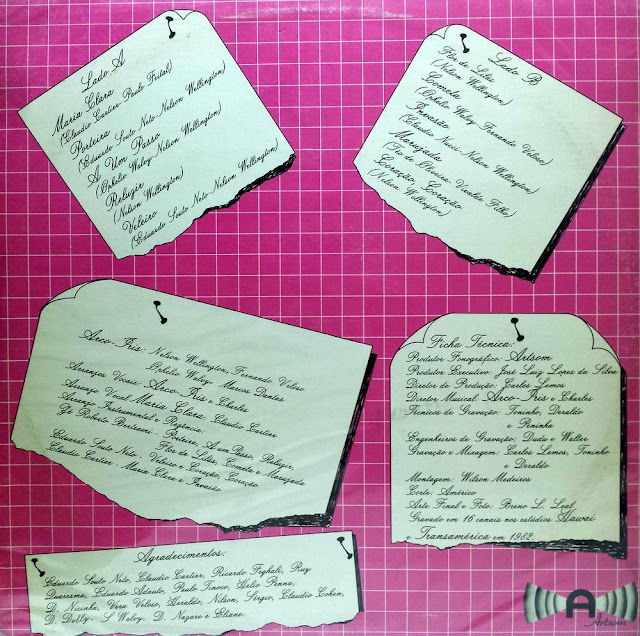 Lado A
Maria Clara
(Claudio Cartier-Paulo Feital)
Porteira
(Eduardo Souto Neto-Nelson Wellington)
A Um Passo
(Ophélio Walvy-Nelson Wellington)
Reluzir
(Nelson Wellington)
Veleiro
(Eduardo Souto Neto-Nelson Wellington)
Lado B
Flor de Lilás
(Nelson Wellington)
Cometa
(Ophélio Walvy-Fernando Veloso)
Invasão
(Claudio Nucci-Nelson Wellington)
Marujada
(Tião de Oliveira-Vevaldo Filho)
Coração, Coração
(Nelson Wellington)
Arco-Iris: Nelson Wellington, Fernando Veloso
Ophélio Walvy, Marcos Dantas
Arranjos Vocais: Arco-Iris e Charles
Arranjo Vocal Maria Clara: Claudio Cartier
Arranjo Instrumental e Regência:
Gê Roberto Bertrami: Porteira, A um Passo, Reluzir,
Flor de Lilás, Cometa e Marujada
Eduardo Souto Neto: Veleiro e Coração, Coração
Claudio Cartier: Maria Clara e Invasão
Ficha Tecnica:
Produtor Fonográfico: Artsom
Produtor Executivo: José Luiz Lopes da Silva
Diretor de Produção: Carlos Lemos
Diretor Musical: Arco-Iris e Charles
Técnicos de Gravação: Toninho, Deraldo
e Paninho
Engenheiros de Gravação: Dudu e Walter
Gravação e Mixagem: Carlos Lemos, Toninho
e Deraldo
Montagem: Wilson Medeiros
Corte: Américo
Arte Final e Foto: Breno L. Leal
Gravado em 16 canais nos estúdios Hawai
e Transamérica em 1982.
Agradecimentos:
Eduardo Souto Neto, Claudio Cartier, Ricardo Feghali, Ruy
Quaresma, Eduardo Adauto, Paulo Tinoco, Hélio Penna,
D. Nicinha, Vera Veloso, Heraldo, Nilson, Sergio, Claudio Cohen,
D. Dolly, S. Walvy, D. Nazare e Eliane.
A
Artsom